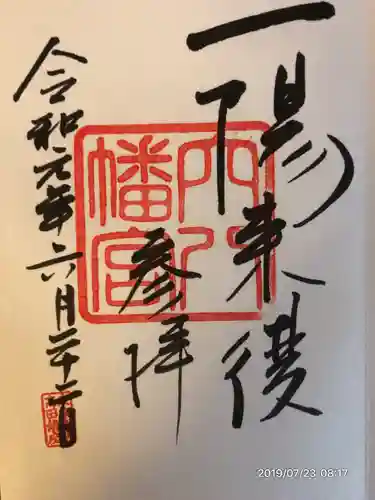 一陽来復
穴八幡宮
参拝
令和元年六月二十二日
2019/07/23 08:17